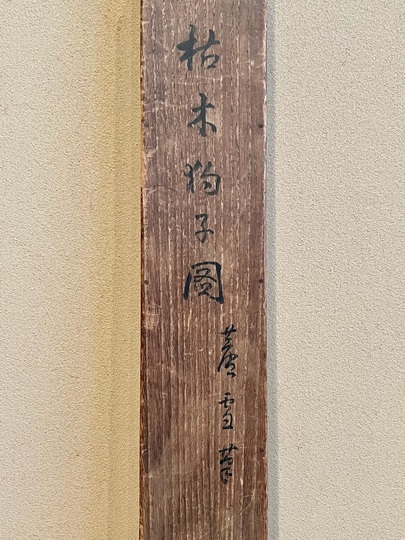 枯木狗子圖
蘆雪筆